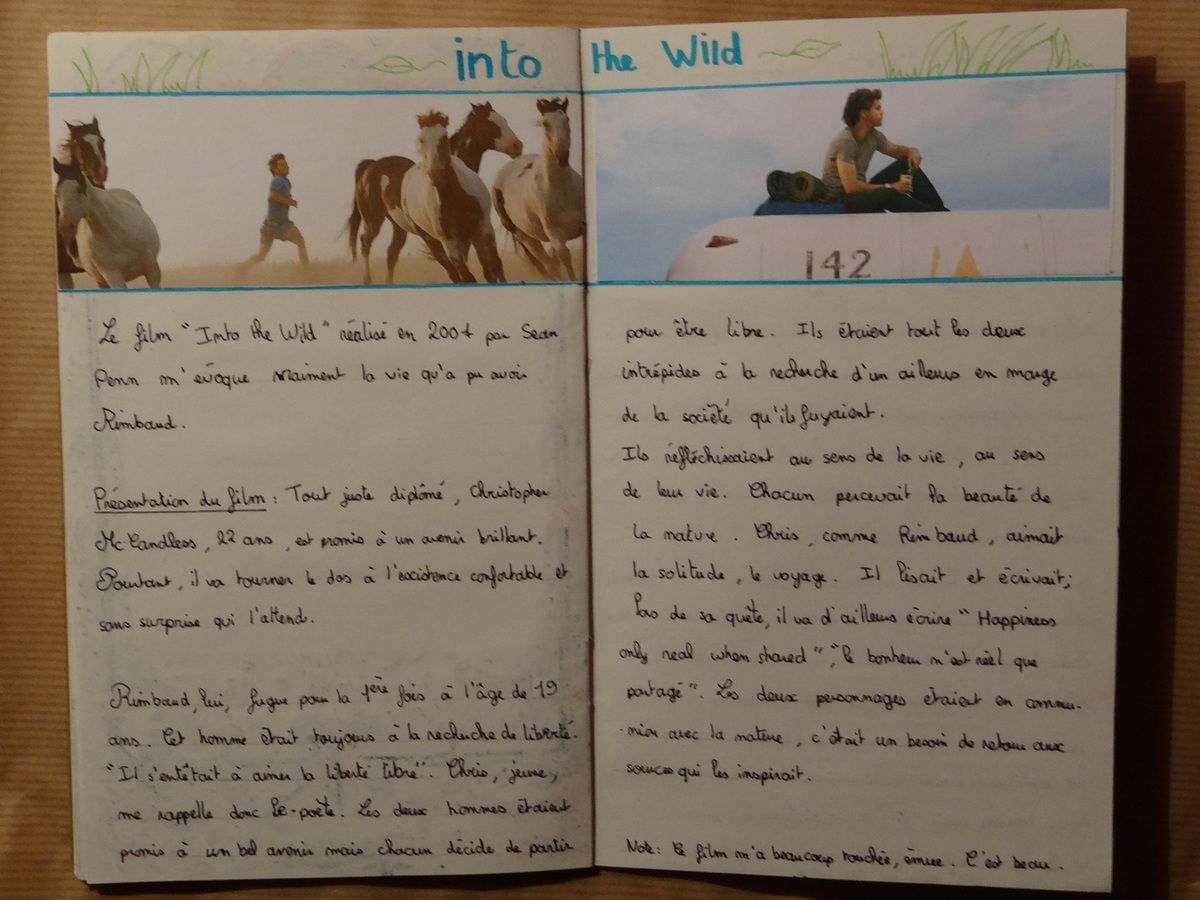 into the Wild
142
Le film "Into the Wild" réalisé en 2007 par Sean
Penn m'évoque vraiment la vie qu'a pu avoir
Rimbaud.
Présentation du film : Tout juste diplômé, Christopher
Mc Candless, 22 ans, est promis à un avenir brillant.
Pourtant, il va tourner le dos à l'existence confortable et
sans surprise qui l'attend.
Rimbaud, lui, fugue pour la 1ère fois à l'âge de 19
ans. Cet homme était toujours à la recherche de liberté.
"Il s'entêtait à aimer la liberté libre". Chris, jeune,
me rappelle donc le poète. Les deux hommes étaient
promis à un bel avenir mais chacun décide de partir
pour être libre. Ils étaient tout les deux
intrépides à la recherche d'un ailleurs en marge
de la société qu'ils fuyaient.
Ils réfléchissaient au sens de la vie, au sens
de leur vie. Chacun percevait la beauté de
la nature. Chris, comme Rimbaud, aimait
la solitude, le voyage. Il lisait et écrivait;
lors de sa quête, il va d'ailleurs écrire "Happiness
only real when shared", "le bonheur n'est réel que
partagé". Les deux personnages étaient en commu-
-nion avec la nature, c'était un besoin de retour aux
sources qui les inspirait.
Note: Ce film m'a beaucoup touchée, émue. C'est beau.